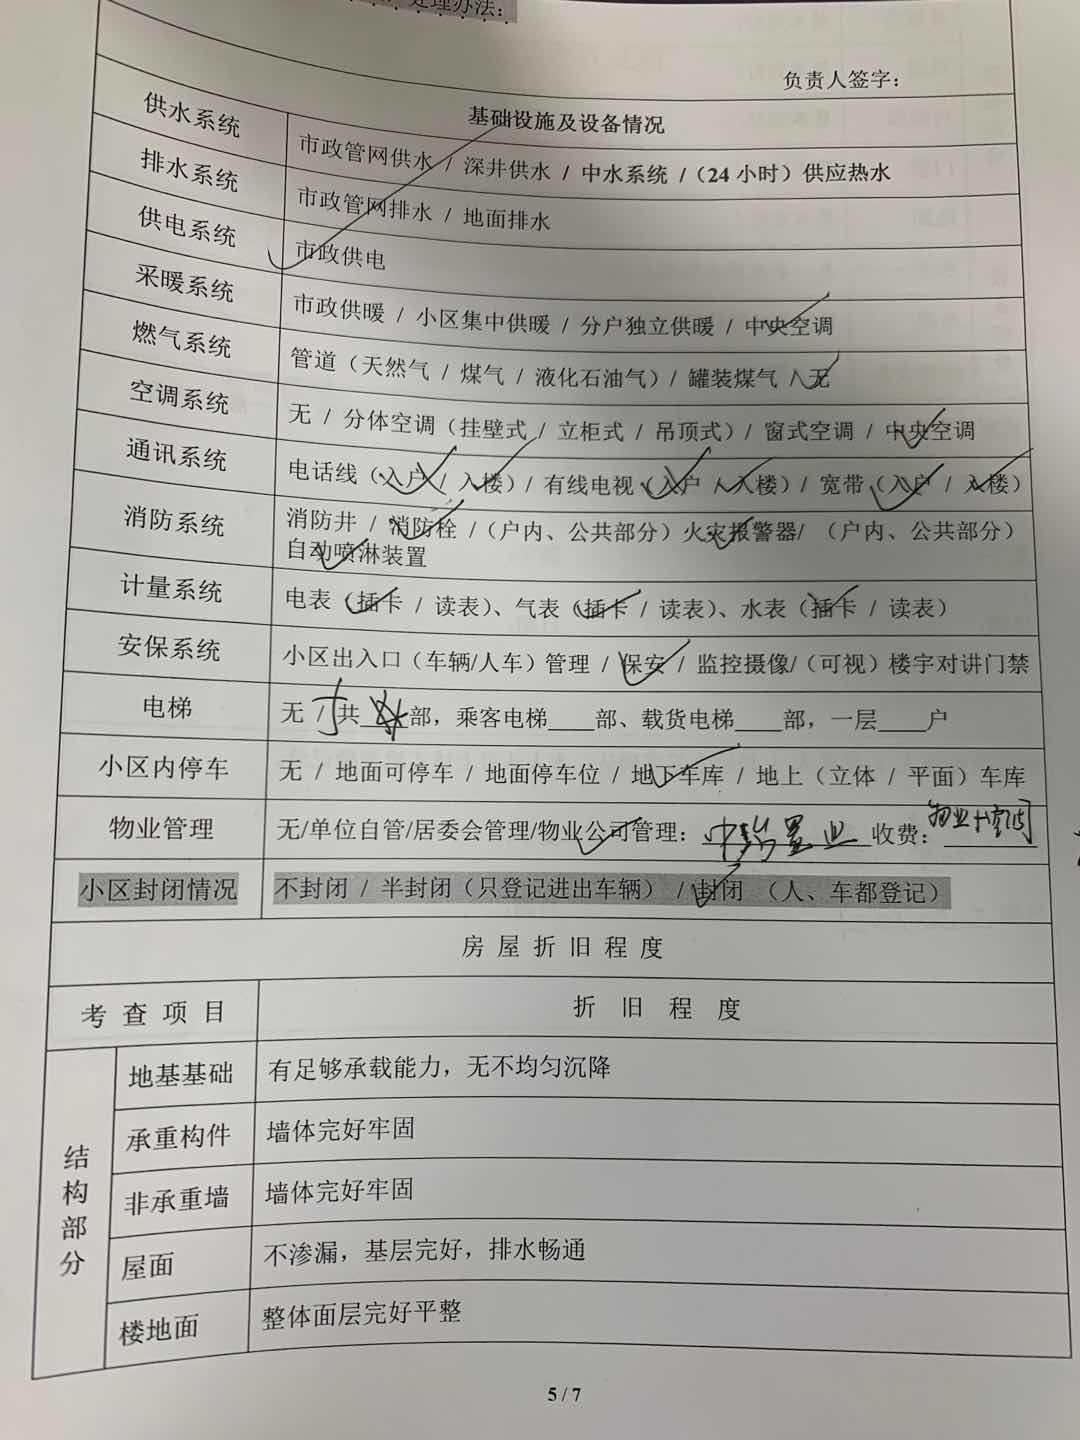 处理办法：
负责人签字：
基础设施及设备情况
供水系统 市政管网供水 / 深井供水 / 中水系统 /（24 小时）供应热水
排水系统 市政管网排水 / 地面排水
供电系统 市政供电
采暖系统 市政供暖 / 小区集中供暖 / 分户独立供暖 / 中央空调
燃气系统 管道（天然气 / 煤气 / 液化石油气）/ 罐装煤气 / 无
空调系统 无 / 分体空调（挂壁式 / 立柜式 / 吊顶式）/ 窗式空调 / 中央空调
通讯系统 电话线（入户 / 入楼）/ 有线电视（入户 / 入楼）/ 宽带（入户 / 入楼）
消防系统 消防井 / 消防栓 /（户内、公共部分）火灾报警器/ （户内、公共部分）
自动喷淋装置
计量系统 电表（插卡 / 读表）、气表（插卡 / 读表）、水表（插卡 / 读表）
安保系统 小区出入口（车辆/人车）管理 / 保安 / 监控摄像/（可视）楼宇对讲门禁
电梯 无 / 共 部，乘客电梯____部、载货电梯____部，一层____户
小区内停车 无 / 地面可停车 / 地面停车位 / 地下车库 / 地上（立体 / 平面）车库
物业管理 无/单位自管/居委会管理/物业公司管理： 中瑞置业 收费： 物业+空调
小区封闭情况 不封闭 / 半封闭（只登记进出车辆） / 封闭 （人、车都登记）
房屋折旧程度
考查项目 折旧程度
结构部分
地基基础 有足够承载能力，无不均匀沉降
承重构件 墙体完好牢固
非承重墙 墙体完好牢固
屋面 不渗漏，基层完好，排水畅通
楼地面 整体面层完好平整
5 / 7